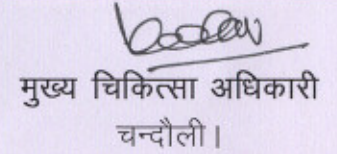 मुख्य चिकित्सा अधिकारी
चन्दौली।